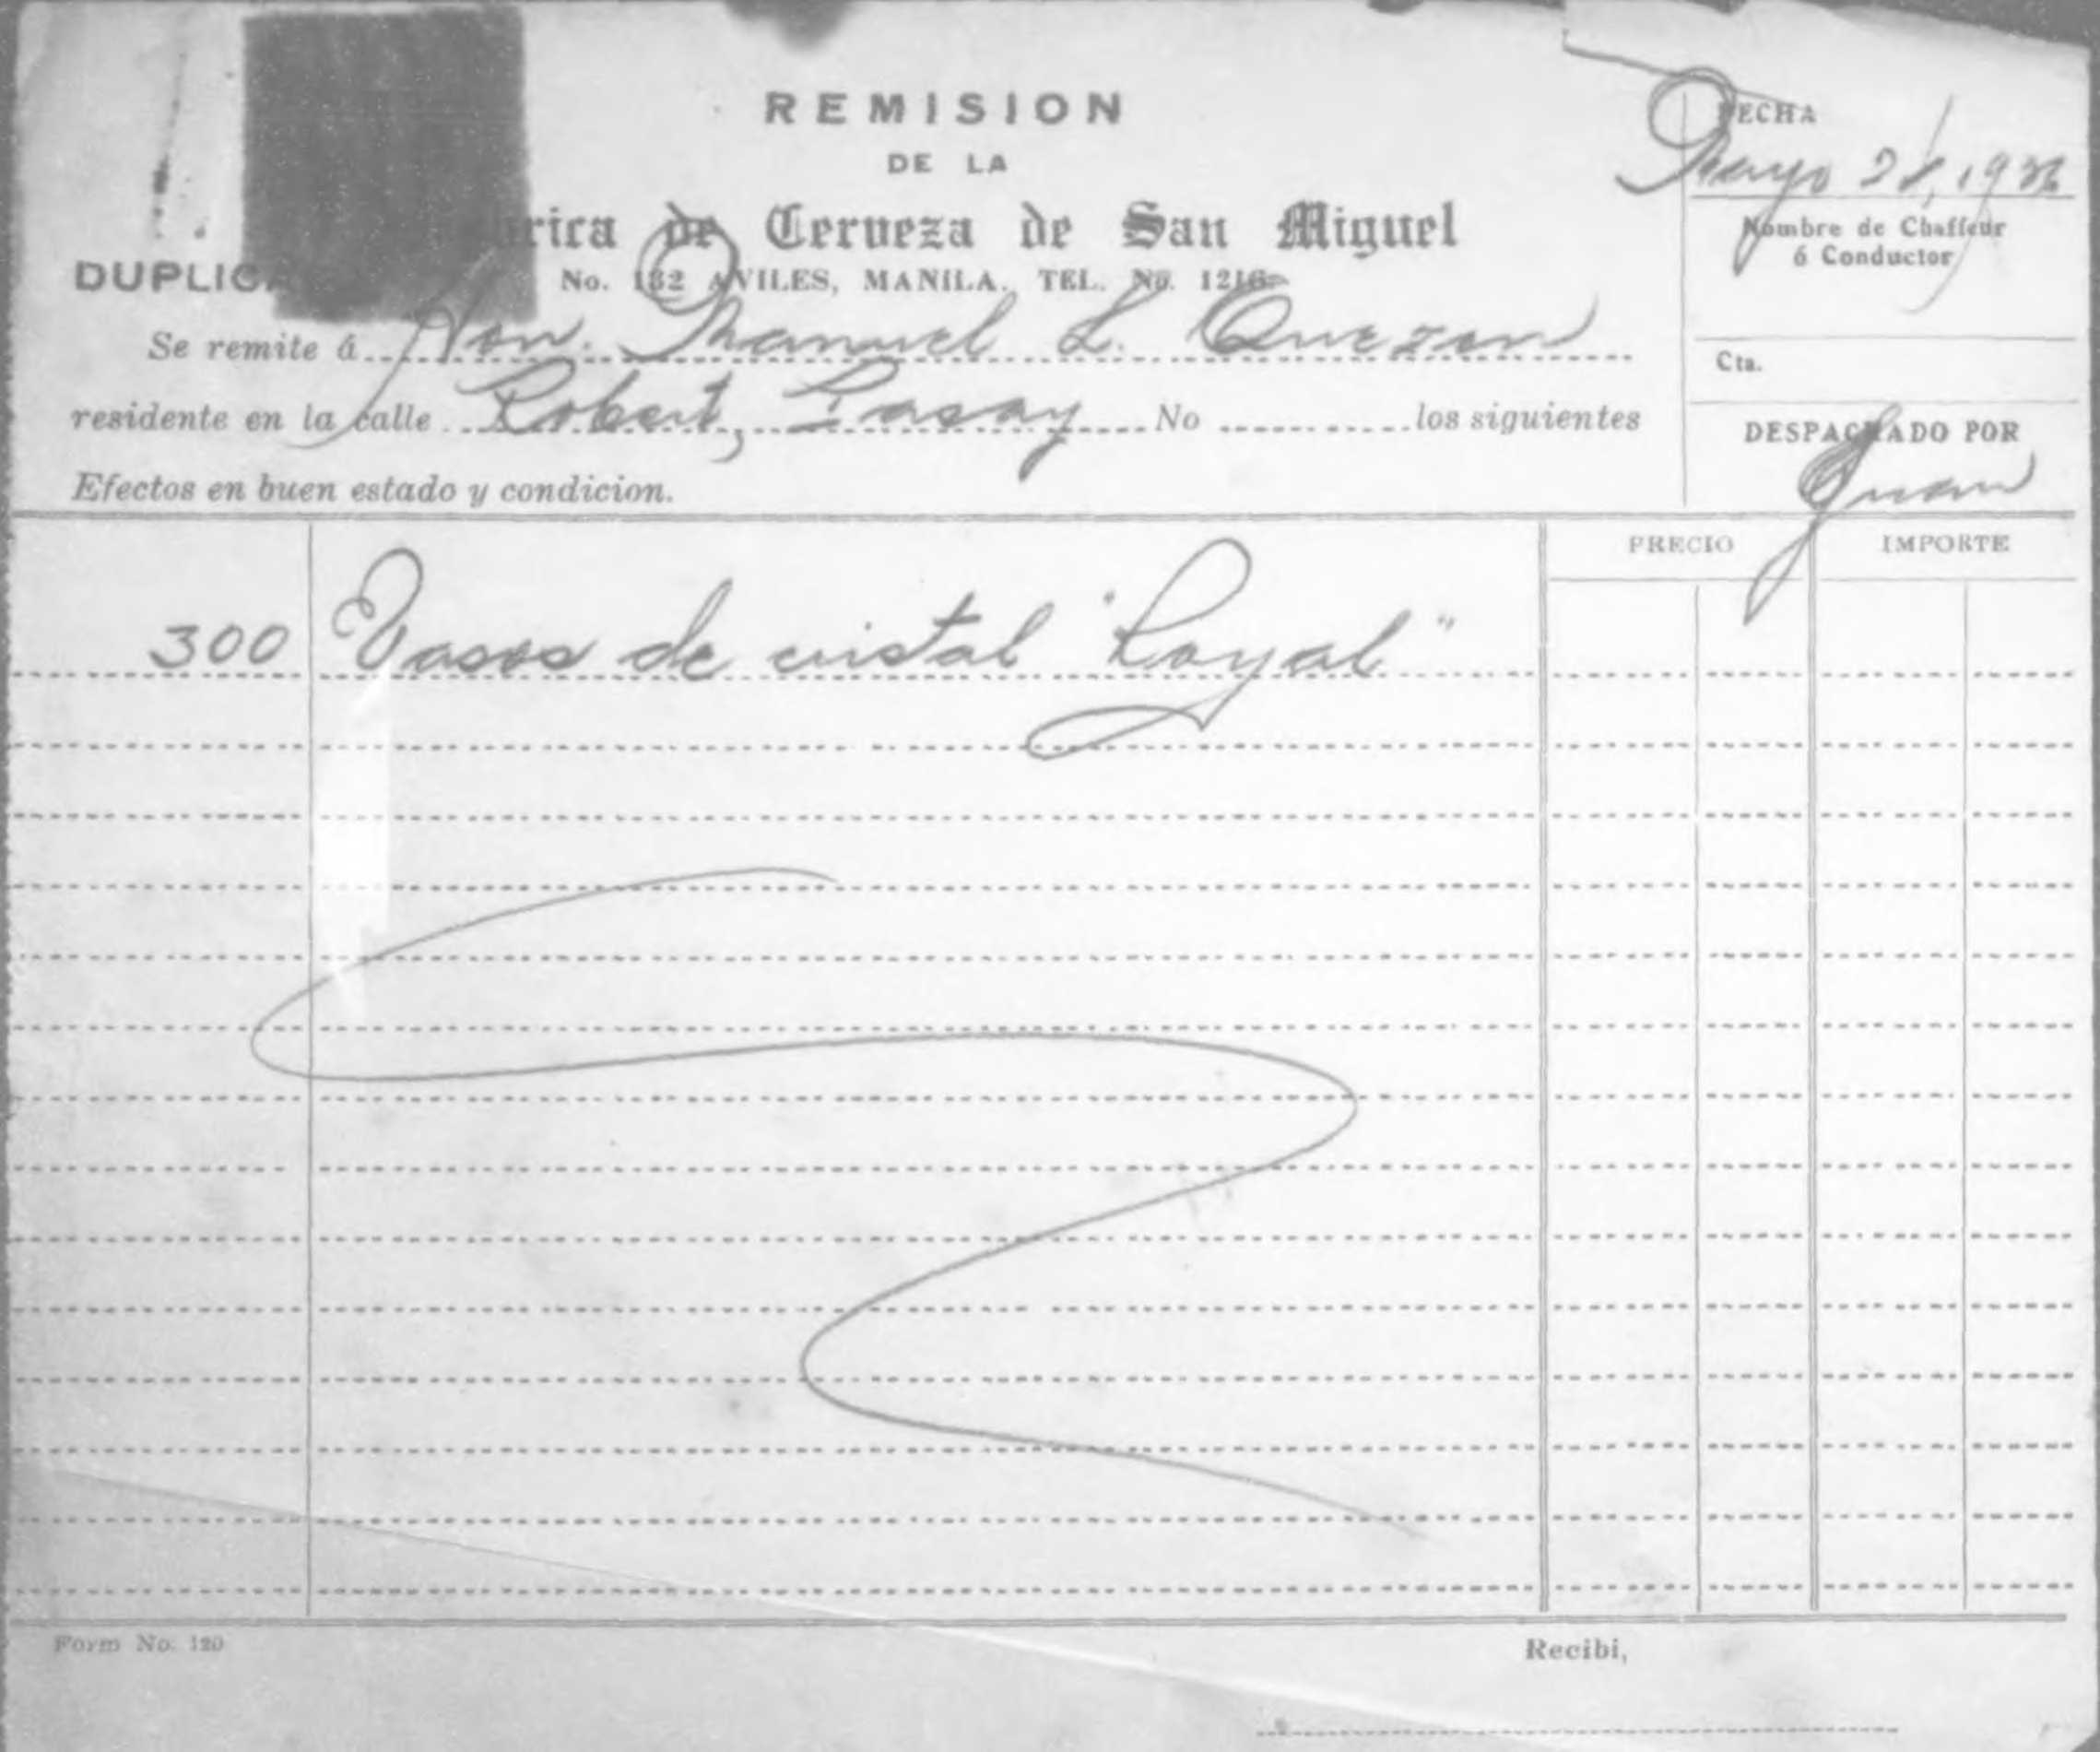 REMISION
DE LA
rica de Cerveza de San Miguel
DUPLICA
No. 132 AVILES, MANILA. TEL. No. 1216
FECHA
Mayo 28, 1936
Nombre de Chaffeur
ó Conductor
Se remite á Hon. Manuel L. Quezon
Cta.
residente en la calle Robert, Pasay No los siguientes
DESPACHADO POR
Juan
Efectos en buen estado y condicion.
PRECIO IMPORTE
300 Vasos de cristal "Royal"
Form No. 120
Recibi,